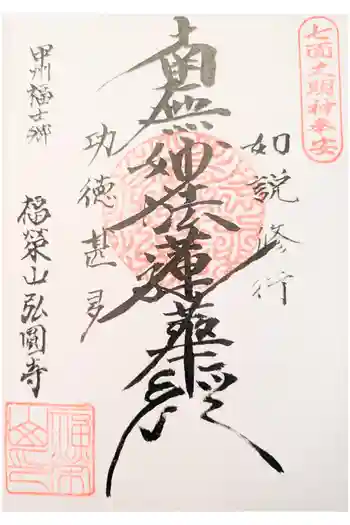 七面大明神奉安
如説修行
南無妙法蓮華経
功徳甚多
甲州福士郷
福榮山弘圓寺